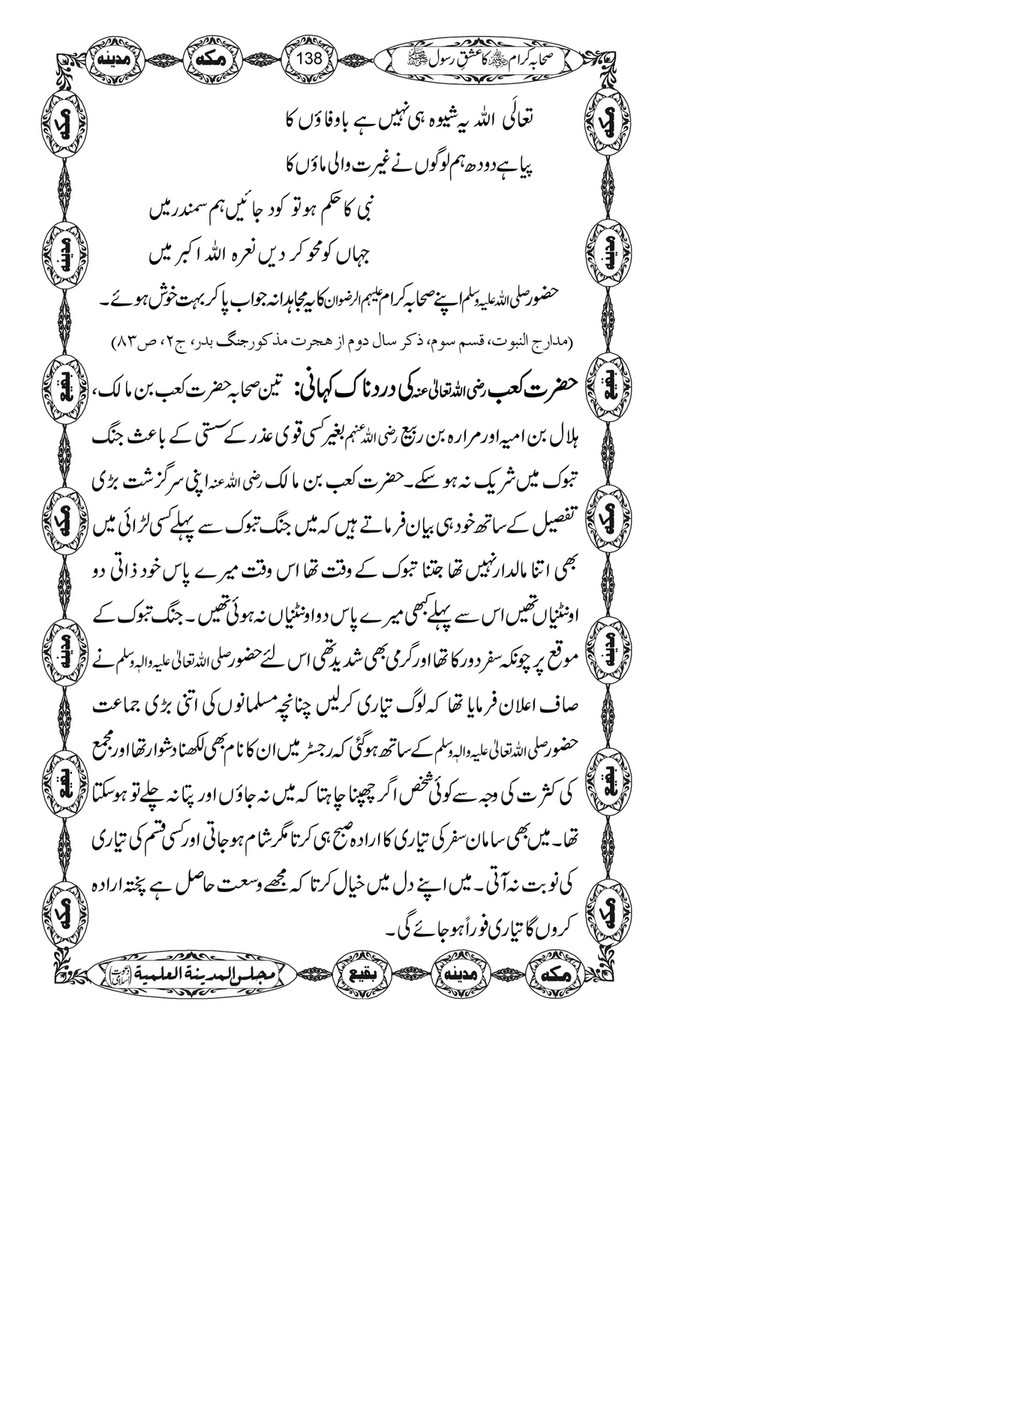 صحابہ کرام ﷢ کا عشق رسول ﷺ
138
مکه
مدینه
تعالَی اللہ یہ شیوہ ہی نہیں ہے باوفاؤں کا
پیا ہے دودھ ہم لوگوں نے غیرت والی ماؤں کا
نبی کا حکم ہو تو کود جائیں ہم سمندر میں
جہاں کو محو کر دیں نعرہ اللہ اکبر میں
حضور صلی اللہ علیہ وسلم اپنے صحابہ کرام علیہم الرضوان کا یہ مجاہدانہ جواب پا کر بہت خوش ہوئے۔
(مدارج النبوت، قسم سوم، ذکر سال دوم از ھجرت مذکور جنگ بدر، ج۲، ص۸۳)
حضرت کعب رضی اللہ تعالیٰ عنہ کی دردناک کہانی: تین صحابہ حضرت کعب بن مالک،
ہلال بن امیہ اور مرارہ بن ربیع رضی اللہ عنہم بغیر کسی قوی عذر کے سستی کے باعث جنگ
تبوک میں شریک نہ ہو سکے۔ حضرت کعب بن مالک رضی اللہ عنہ اپنی سرگزشت بڑی
تفصیل کے ساتھ خود ہی بیان فرماتے ہیں کہ میں جنگ تبوک سے پہلے کسی لڑائی میں
بھی اتنا مالدار نہیں تھا جتنا تبوک کے وقت تھا اس وقت میرے پاس خود ذاتی دو
اونٹنیاں تھیں اس سے پہلے کبھی میرے پاس دو اونٹنیاں نہ ہوئی تھیں۔ جنگ تبوک کے
موقع پر چونکہ سفر دور کا تھا اور گرمی بھی شدید تھی اس لئے حضور صلی اللہ تعالیٰ علیہ والہٖ وسلم نے
صاف اعلان فرمایا تھا کہ لوگ تیاری کرلیں چنانچہ مسلمانوں کی اتنی بڑی جماعت
حضور صلی اللہ تعالیٰ علیہ والہٖ وسلم کے ساتھ ہوگئی کہ رجسٹر میں ان کا نام بھی لکھنا دشوار تھا اور مجمع
کی کثرت کی وجہ سے کوئی شخص اگر چھپنا چاہتا کہ میں نہ جاؤں اور پتا نہ چلے تو ہوسکتا
تھا۔ میں بھی سامان سفر کی تیاری کا ارادہ صبح ہی کرتا مگر شام ہو جاتی اور کسی قسم کی تیاری
کی نوبت نہ آتی۔ میں اپنے دل میں خیال کرتا کہ مجھے وسعت حاصل ہے پختہ ارادہ
کروں گا تیاری فوراً ہو جائے گی۔
مکه
مدینه
بقیع
مکه
مدینه
بقیع
مکه
مکه
مدینه
بقیع
مکه
مدینه
بقیع
مکه
مکه
مدینه
بقیع
مجلس المدینة العلمیة (دعوت اسلامی)